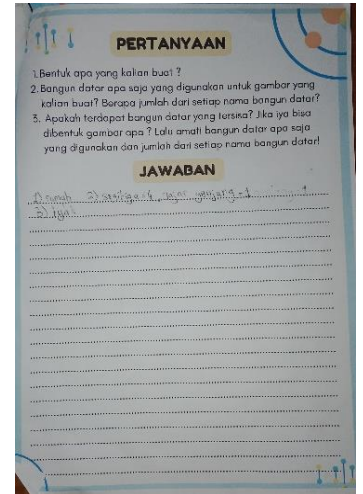 PERTANYAAN
1. Bentuk apa yang kalian buat ?
2. Bangun datar apa saja yang digunakan untuk gambar yang
kalian buat? Berapa jumlah dari setiap nama bangun datar?
3. Apakah terdapat bangun datar yang tersisa? Jika iya bisa
dibentuk gambar apa ? Lalu amati bangun datar apa saja
yang digunakan dan jumlah dari setiap nama bangun datar!
JAWABAN
1) rumah 2)
3)